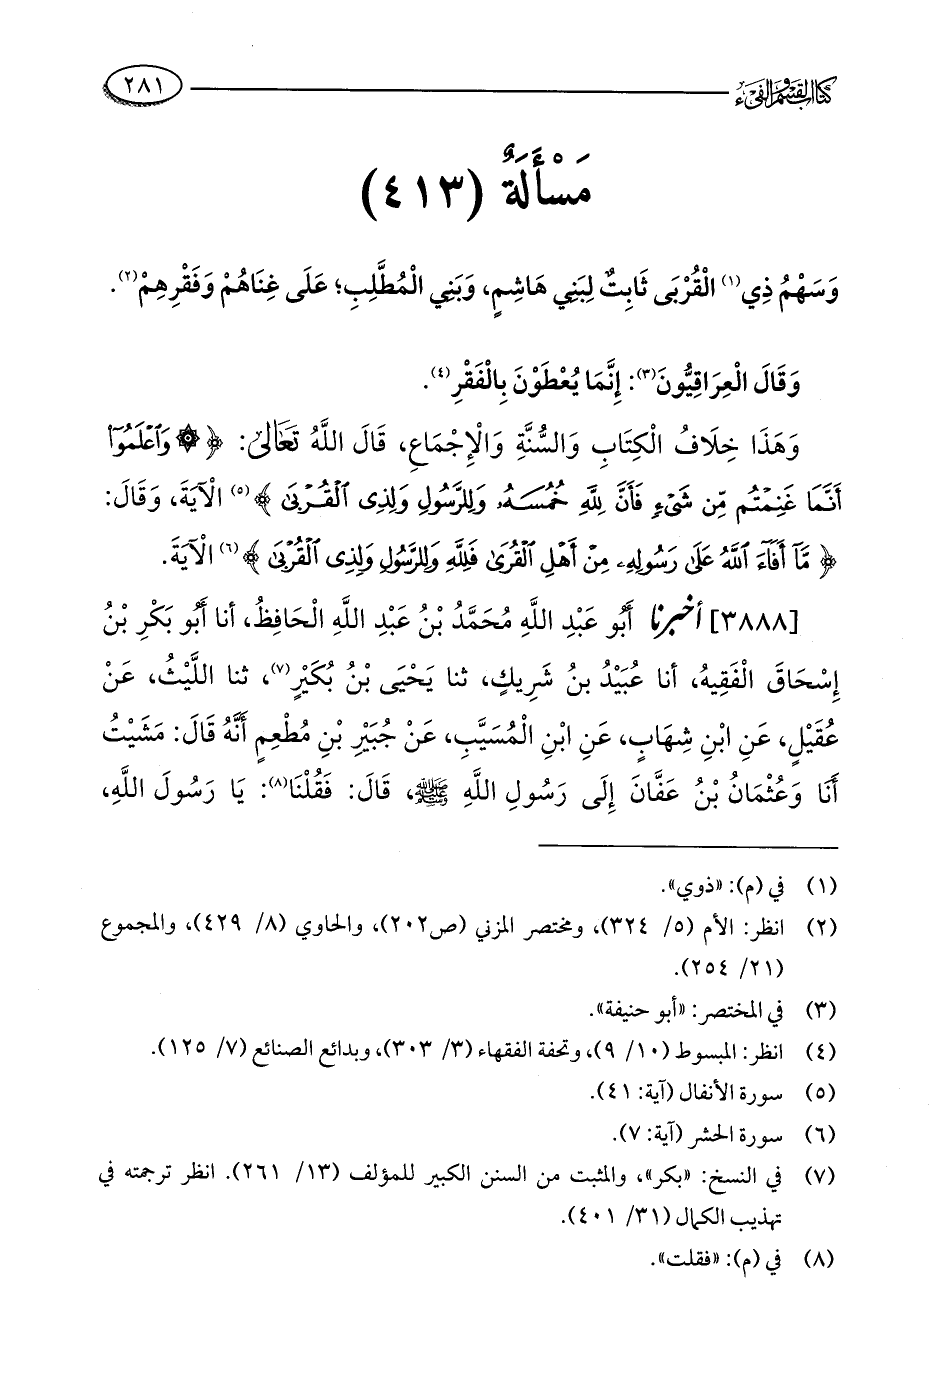 كتاب القسم والفيء ٢٨١
مَسْأَلَةٌ (٤١٣)
وَسَهْمُ ذِي(١) الْقُرْبَى ثَابِتٌ لِبَنِي هَاشِمٍ، وَبَنِي الْمُطَّلِبِ؛ عَلَى غِنَاهُمْ وَفَقْرِهِمْ(٢).
وَقَالَ الْعِرَاقِيُّونَ(٣): إِنَّمَا يُعْطَوْنَ بِالْفَقْرِ(٤).
وَهَذَا خِلَافُ الْكِتَابِ وَالسُّنَّةِ وَالْإِجْمَاعِ، قَالَ اللَّهُ تَعَالَىٰ: ﴿۞ وَٱعْلَمُوٓا۟
أَنَّمَا غَنِمْتُم مِّن شَىْءٍ فَأَنَّ لِلَّهِ خُمُسَهُۥ وَلِلرَّسُولِ وَلِذِى ٱلْقُرْبَىٰ﴾(٥) الْآيَةَ، وَقَالَ:
﴿مَّآ أَفَآءَ ٱللَّهُ عَلَىٰ رَسُولِهِۦ مِنْ أَهْلِ ٱلْقُرَىٰ فَلِلَّهِ وَلِلرَّسُولِ وَلِذِى ٱلْقُرْبَىٰ﴾(٦) الْآيَةَ.
[٣٨٨٨] أخبرنا أَبُو عَبْدِ اللَّهِ مُحَمَّدُ بْنُ عَبْدِ اللَّهِ الْحَافِظُ، أنا أَبُو بَكْرِ بْنُ
إِسْحَاقَ الْفَقِيهُ، أنا عُبَيْدُ بنُ شَرِيكٍ، ثنا يَحْيَى بْنُ بُكَيْرٍ(٧)، ثنا اللَّيْثُ، عَنْ
عُقَيْلٍ، عَنِ ابْنِ شِهَابٍ، عَنِ ابْنِ الْمُسَيَّبِ، عَنْ جُبَيْرِ بْنِ مُطْعِمٍ أَنَّهُ قَالَ: مَشَيْتُ
أَنَا وَعُثْمَانُ بْنُ عَفَّانَ إِلَى رَسُولِ اللَّهِ ﷺ، قَالَ: فَقُلْنَا(٨): يَا رَسُولَ اللَّهِ،
(١) في (م): «ذوي».
(٢) انظر: الأم (٥/ ٣٢٤)، ومختصر المزني (ص٢٠٢)، والحاوي (٨/ ٤٢٩)، والمجموع
(٢١/ ٢٥٤).
(٣) في المختصر: «أبو حنيفة».
(٤) انظر: المبسوط (١٠/ ٩)، وتحفة الفقهاء (٣/ ٣٠٣)، وبدائع الصنائع (٧/ ١٢٥).
(٥) سورة الأنفال (آية: ٤١).
(٦) سورة الحشر (آية: ٧).
(٧) في النسخ: «بكر»، والمثبت من السنن الكبير للمؤلف (١٣/ ٢٦١). انظر ترجمته في
تهذيب الكمال (٣١/ ٤٠١).
(٨) في (م): «فقلت».